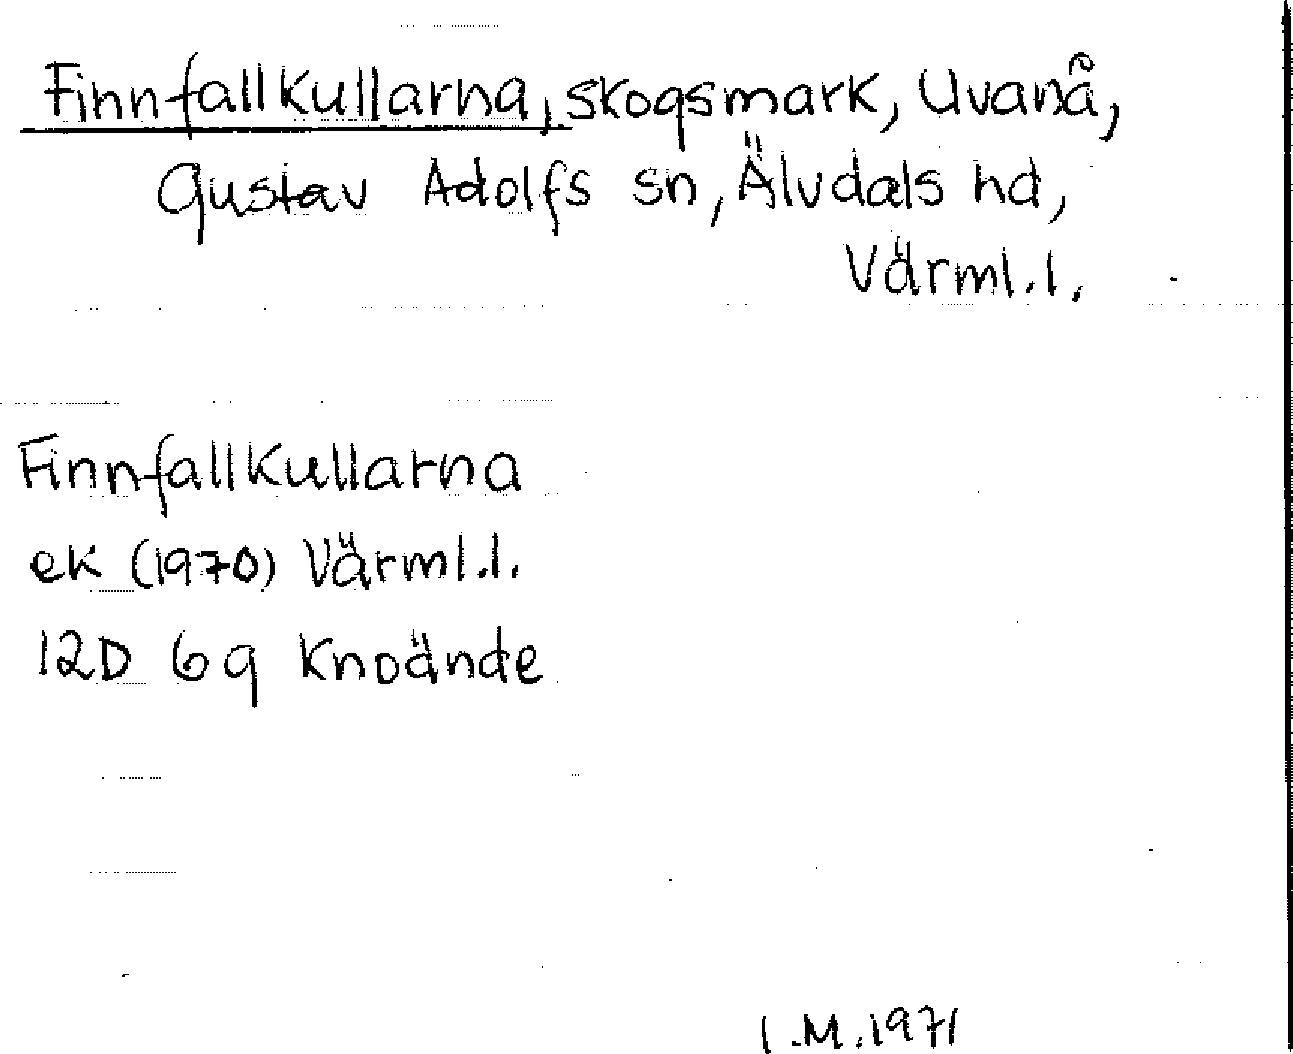 Finnfallkullarna, skogsmark, Uvanå,
Gustav Adolfs sn, Älvdals hd,
Värml.l.
Finnfallkullarna
ek (1970) Värml.l.
12D 6g Knoände
I.M.1971